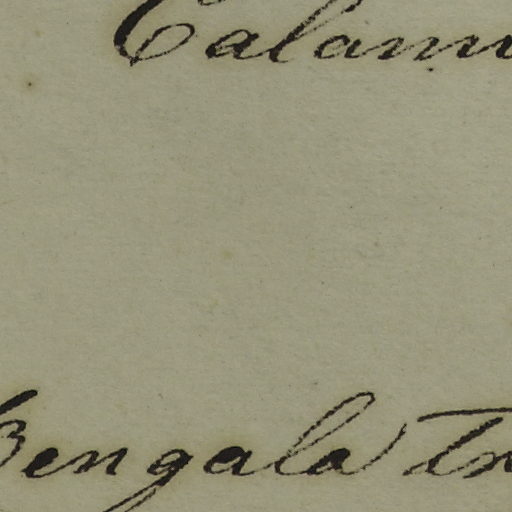 Calam
Bengala In